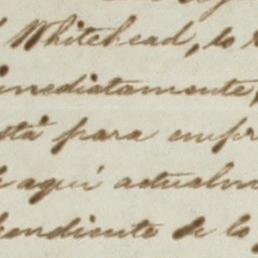 Whitehead, lo
inmediatamente,
está para empr
aquí actualm
pendiente de lo